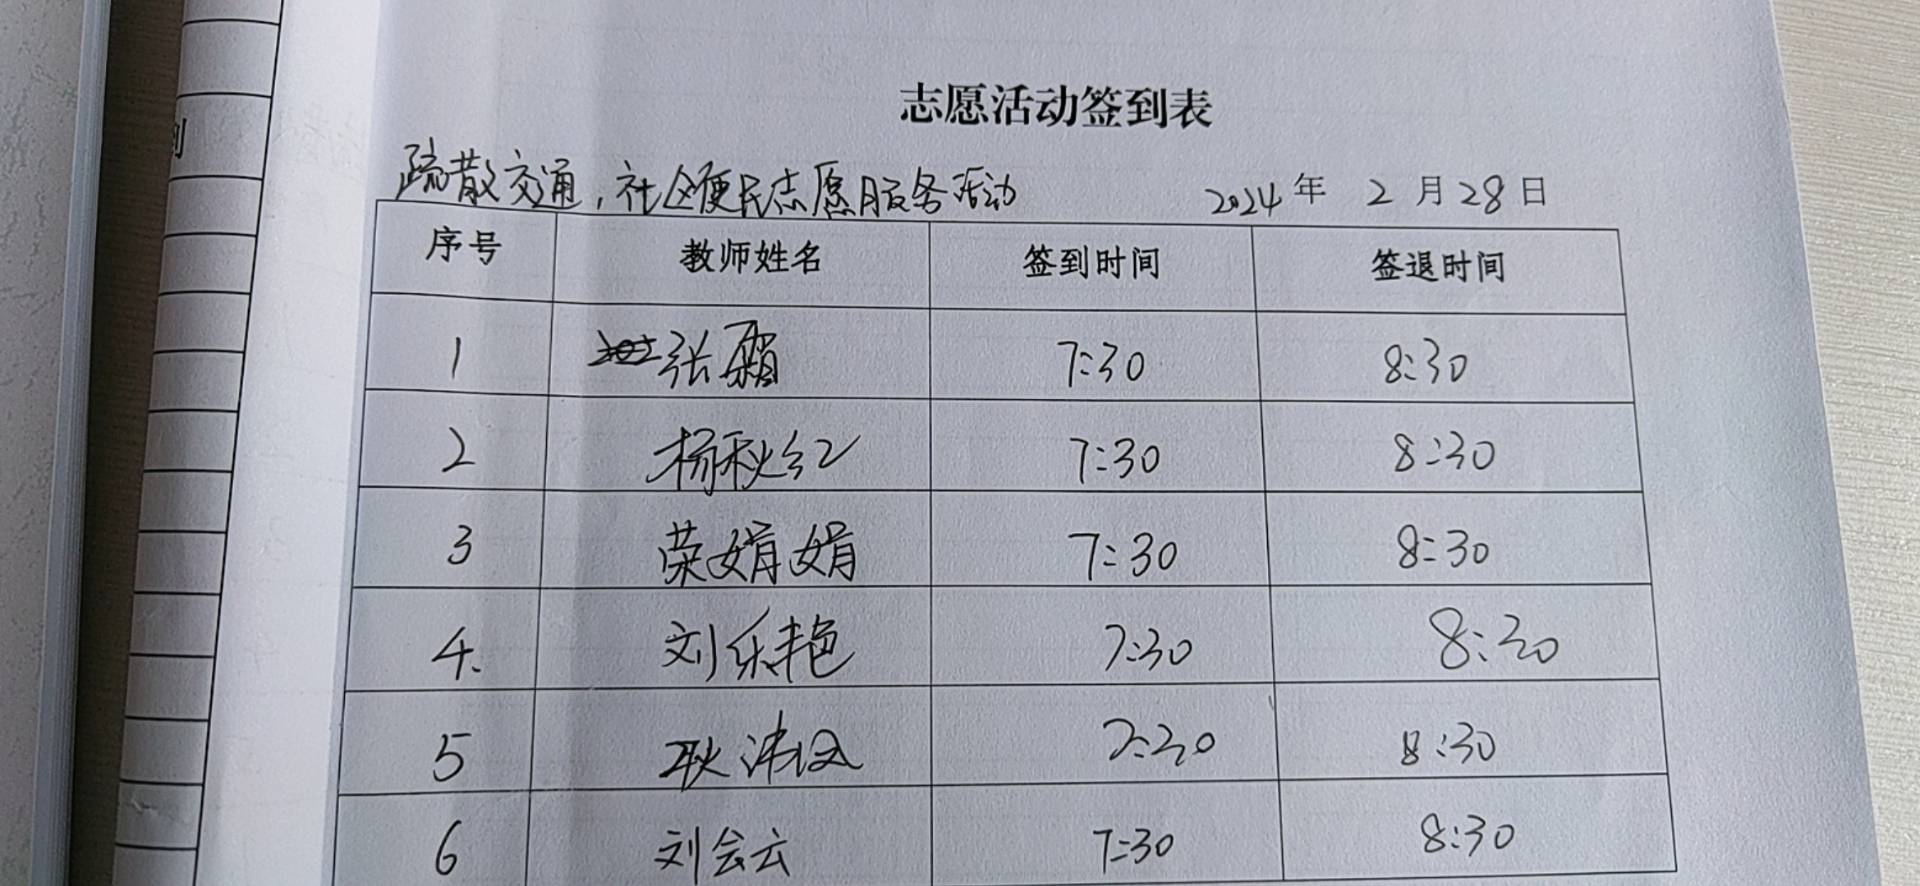 志愿活动签到表
疏散交通，社区便民志愿服务活动 2024年 2月28日
序号 教师姓名 签到时间 签退时间
1 张霜 7:30 8:30
2 杨秋红 7:30 8:30
3 荣娟娟 7:30 8:30
4. 刘乐艳 7:30 8:30
5 耿 7:30 8:30
6 刘会云 7:30 8:30
到